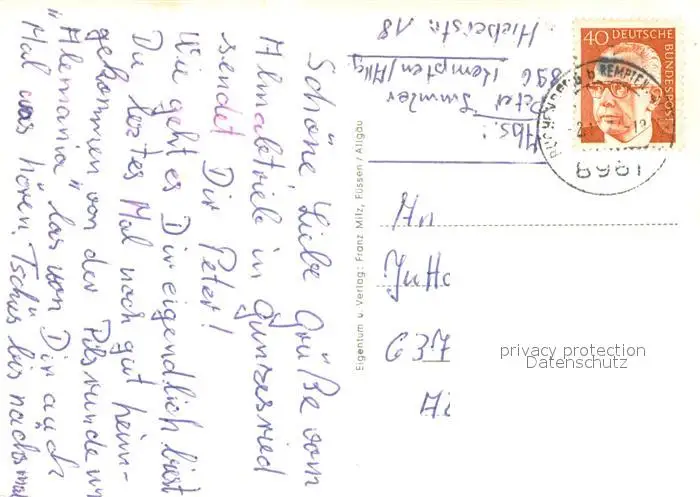 Schöne Liebe Grüße vom
Almabtrieb in Gunzesried
sendet Dir Peter!
Wie geht es Dir eigendlich bist
Du letztes Mal noch gut heim-
gekommen von der Pilsrunde im
"Alemania" las von Dir auch
Mal was hören. Tschüs bis nachsmal
Abs.: Peter
896 Kempten/Allg.
Hieberstr. 18
40 DEUTSCHE BUNDESPOST
b KEMPTEN
8961
Eigentum u. Verlag: Franz Milz, Füssen / Allgäu
An
Jutta
637
privacy protection
Datenschutz